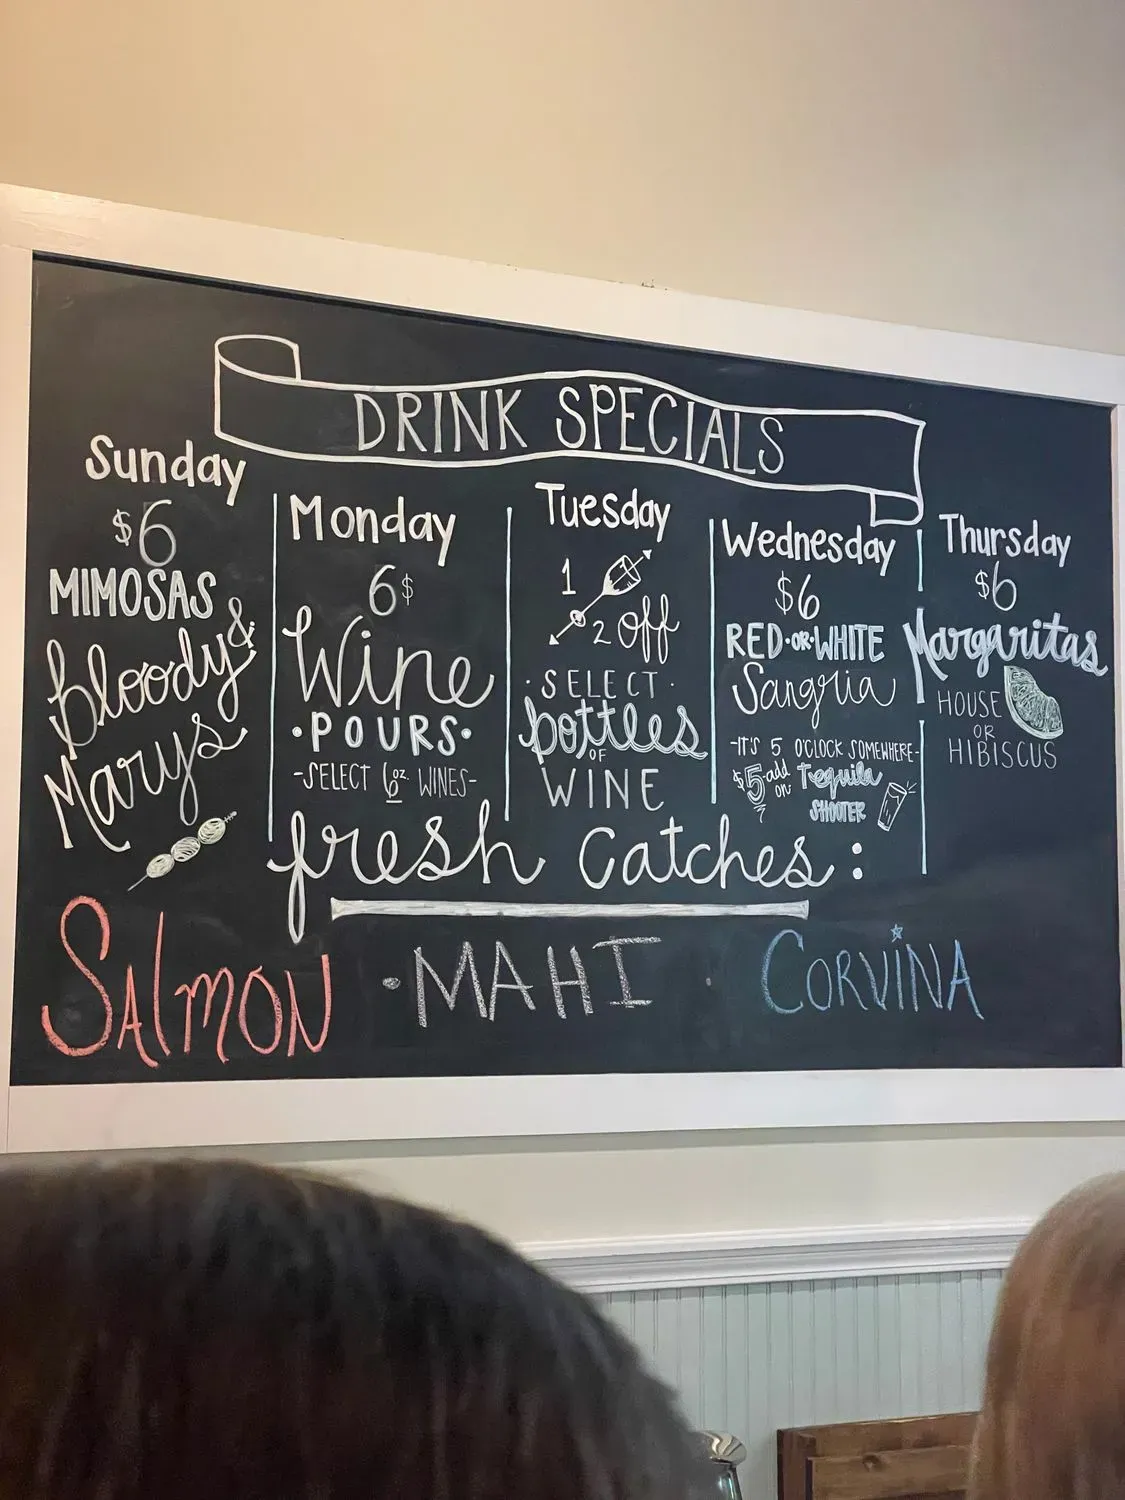 DRINK SPECIALS
Sunday
$6
MIMOSAS
&
Bloody
Marys
Monday
6$
Wine
·POURS·
-SELECT 6oz. WINES-
Tuesday
1
2 off
·SELECT·
bottles
OF
WINE
Wednesday
$6
RED·OR·WHITE
Sangria
-IT'S 5 O'CLOCK SOMEWHERE-
$5 add on Tequila
SHOOTER
Thursday
$6
Margaritas
HOUSE
OR
HIBISCUS
fresh Catches:
SAlmON ·MAHI · CORVINA